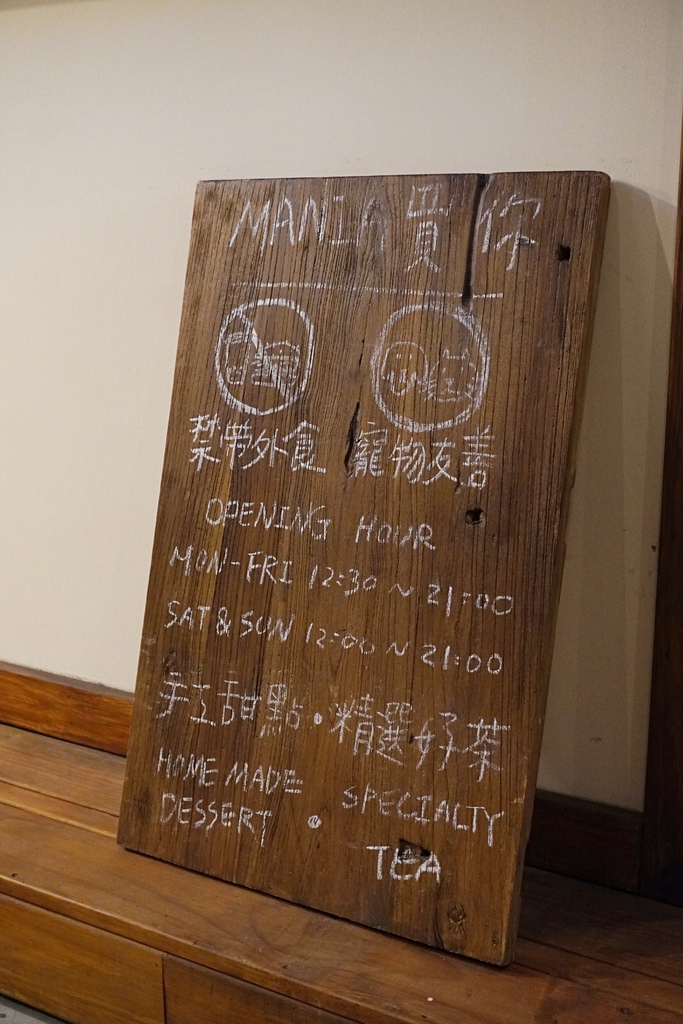 MANIA 買你
禁帶外食 寵物友善
OPENING HOUR
MON-FRI 12:30 ~ 21:00
SAT & SUN 12:00 ~ 21:00
手工甜點・精選好茶
HOME MADE
DESSERT • SPECIALTY
TEA